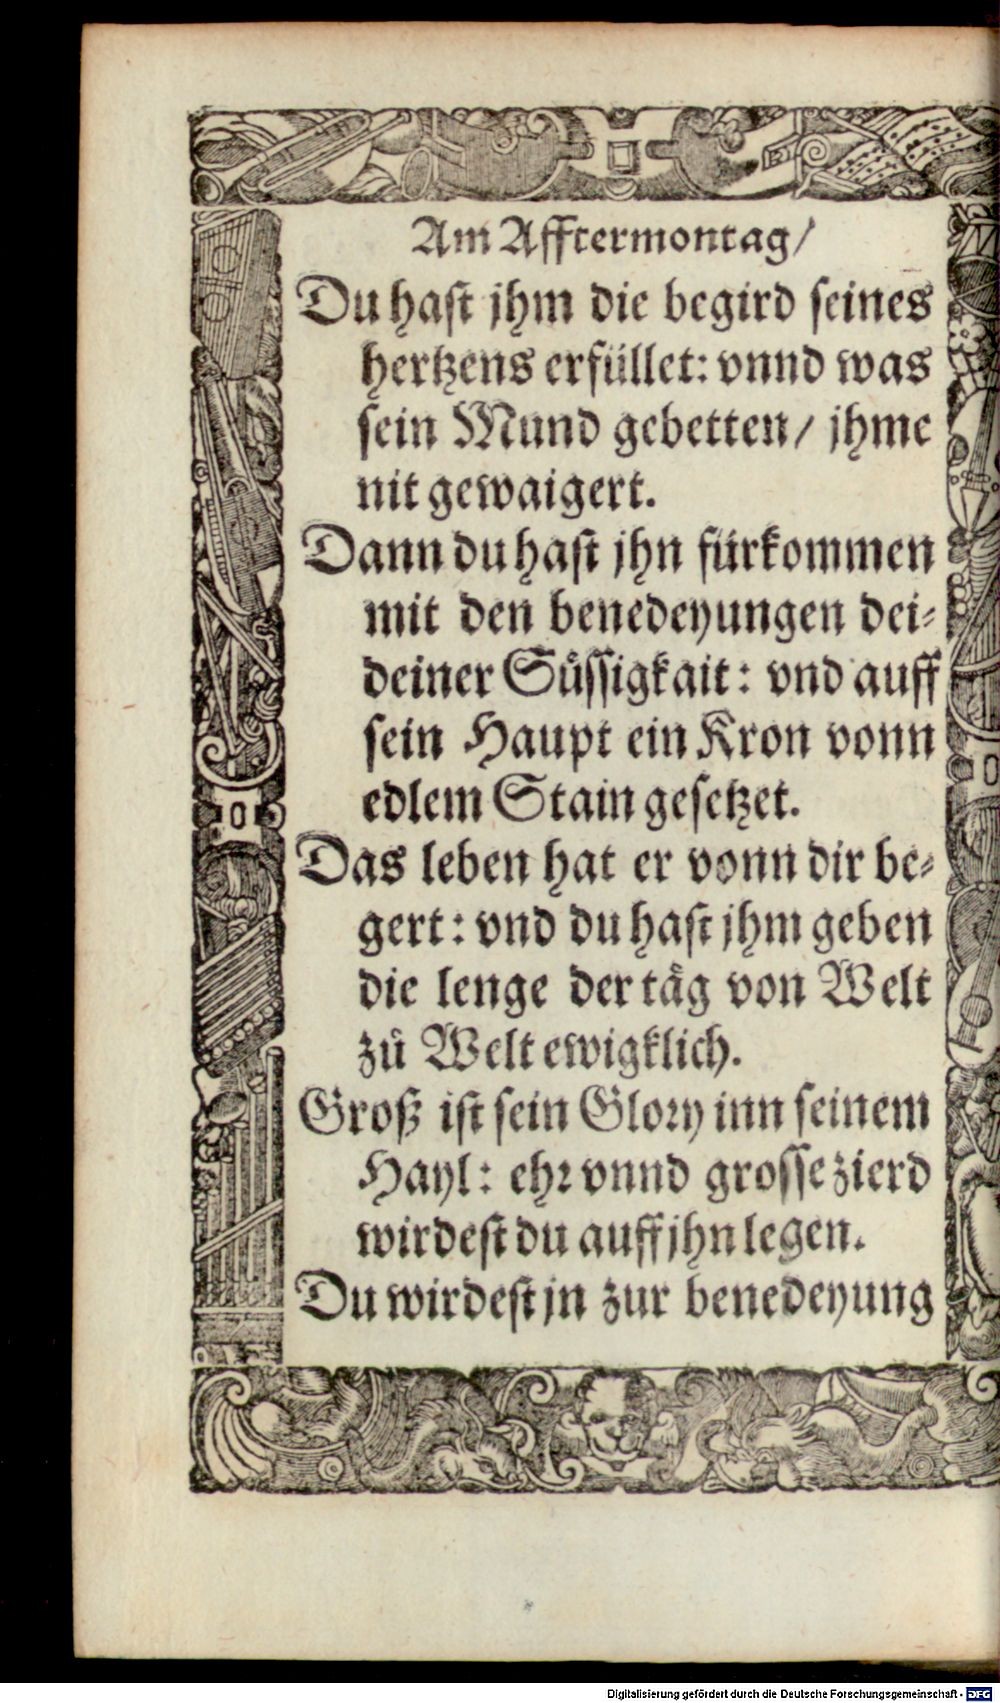 Am Afftermontag/
Du hast jhm die begird seines
hertzens erfüllet: vnnd was
sein Mund gebetten/ jhme
nit gewaigert.
Dann du hast jhn fürkommen
mit den benedeyungen dei-
deiner Süssigkait: vnd auff
sein Haupt ein Kron vonn
edlem Stain gesetzet.
Das leben hat er vonn dir be-
gert: vnd du hast jhm geben
die lenge der täg von Welt
zů Welt ewigklich.
Groß ist sein Glory inn seinem
Hayl: ehr vnnd grosse zierd
wirdest du auff jhn legen.
Du wirdest jn zur benedeyung
Digitalisierung gefördert durch die Deutsche Forschungsgemeinschaft - DFG